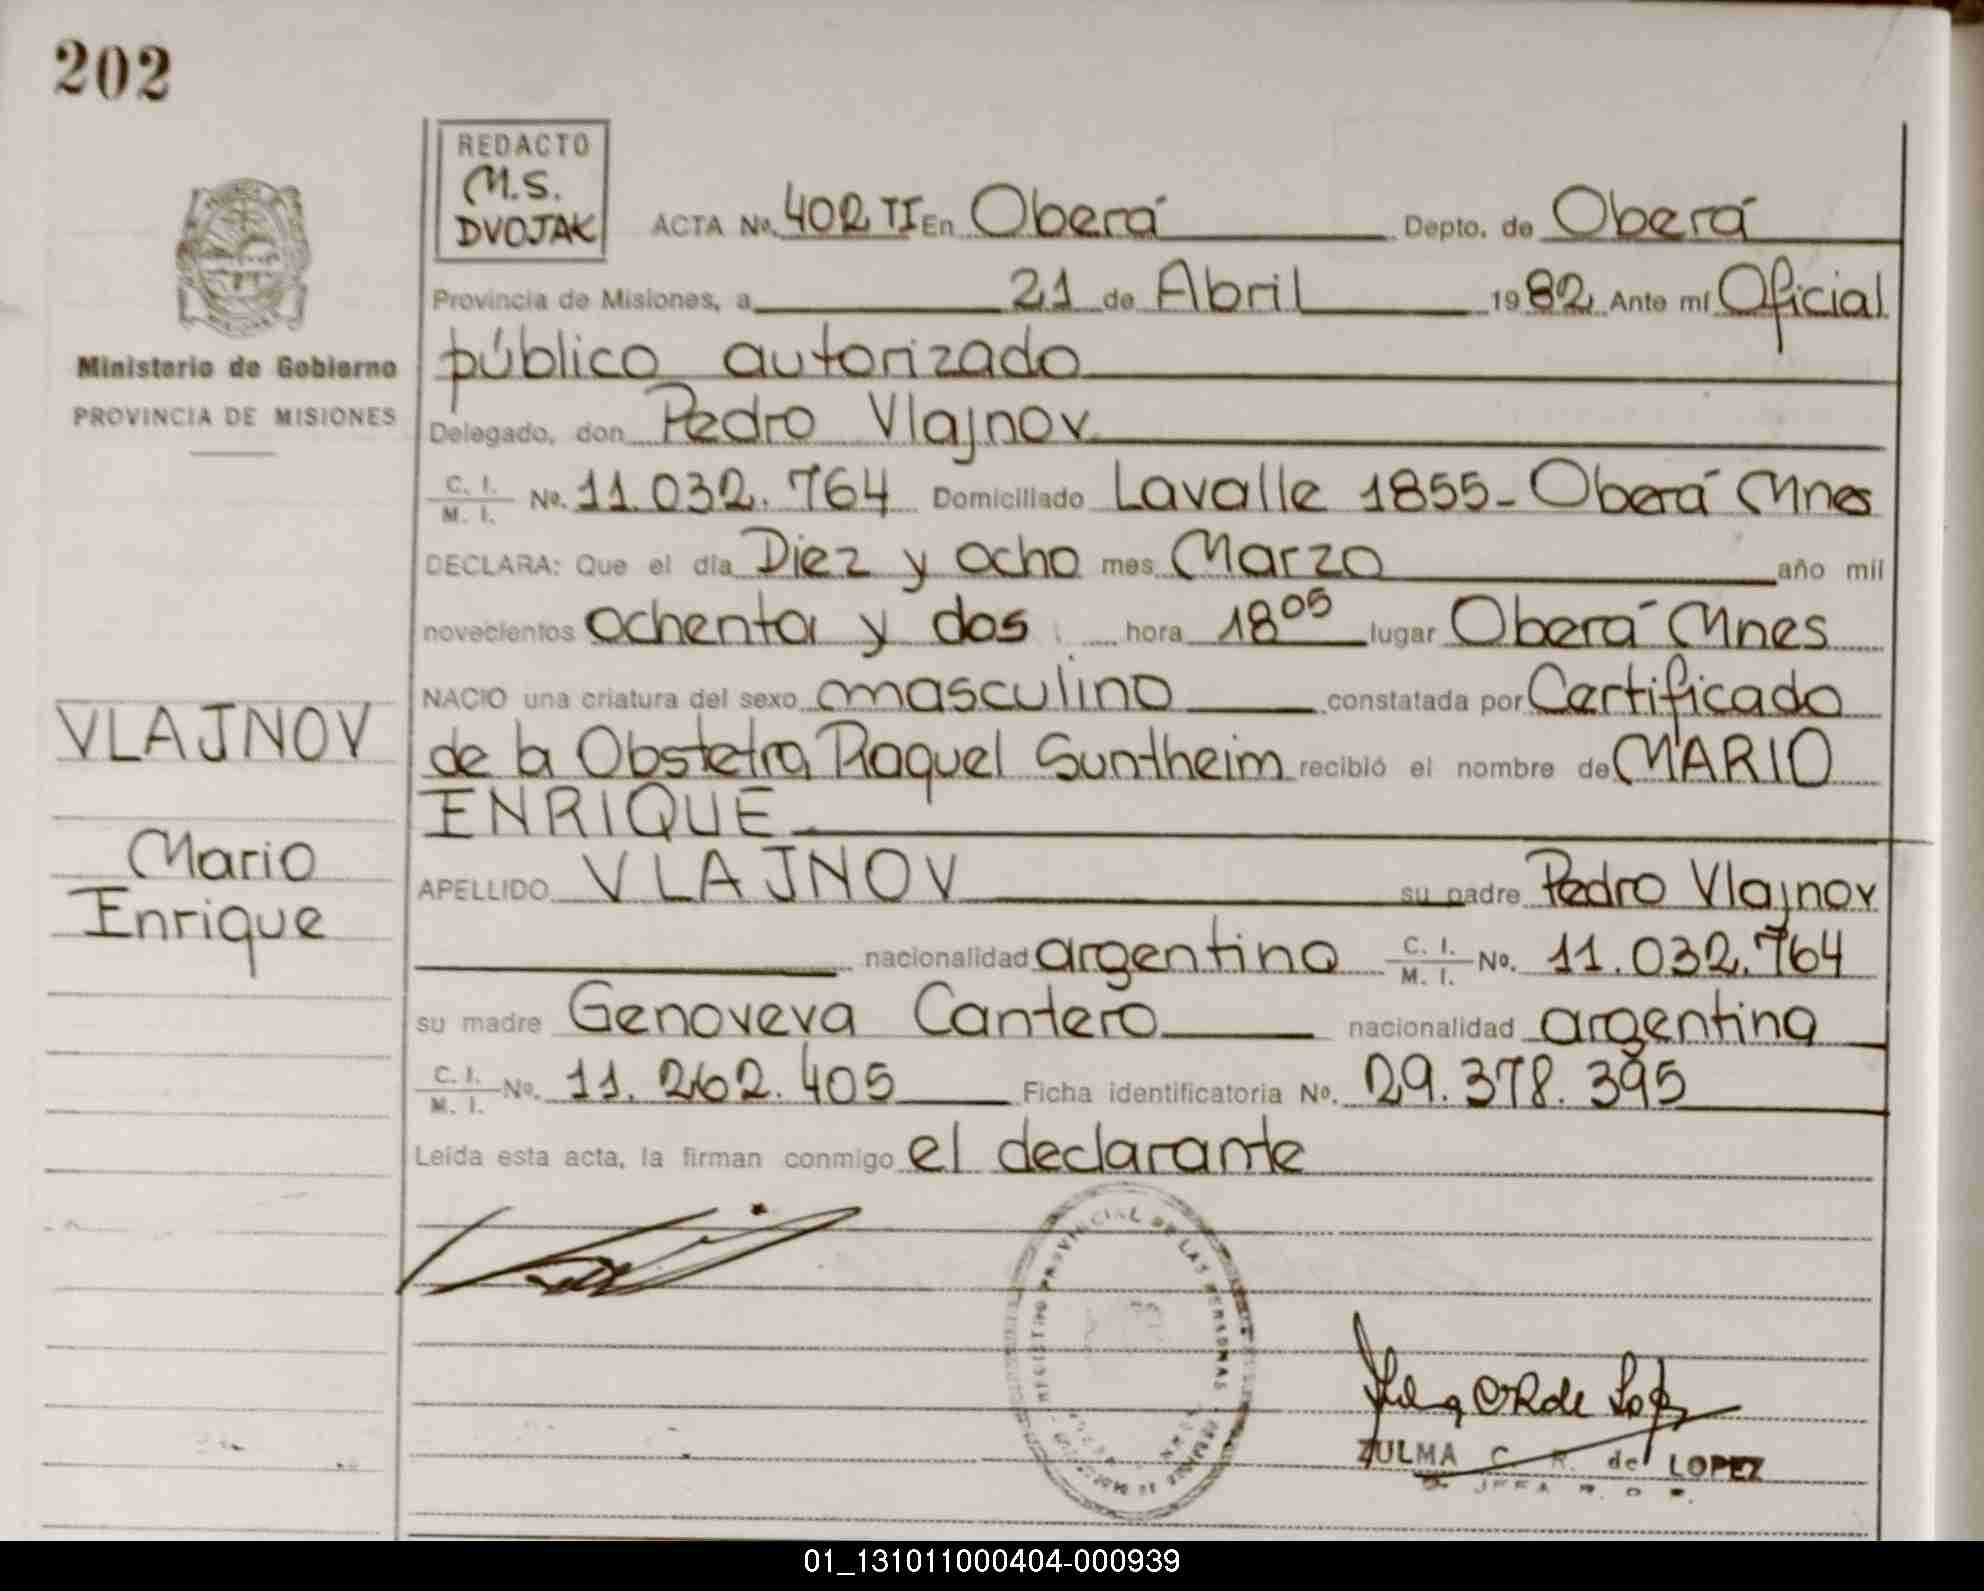 202
REDACTO
M.S.
DVOJAK
ACTA No. 402 TI En Oberá Depto. de Oberá
Provincia de Misiones, a 21 de Abril 1982 Ante mí Oficial
público autorizado
Ministerio de Gobierno
PROVINCIA DE MISIONES
Delegado, don Pedro Vlajnov
C. I. / M. I. No. 11.032.764 Domiciliado Lavalle 1855- Oberá Mnes
DECLARA: Que el día Diez y ocho mes Marzo año mil
novecientos ochenta y dos hora 18 05 lugar Oberá Mnes
NACIO una criatura del sexo masculino constatada por Certificado
de la Obstetra Raquel Suntheim recibió el nombre de MARIO
ENRIQUE
VLAJNOV
Mario
Enrique
APELLIDO VLAJNOV su padre Pedro Vlajnov
nacionalidad argentino C. I. / M. I. No. 11.032.764
su madre Genoveva Cantero nacionalidad argentina
C. I. / M. I. No. 11.262.405 Ficha identificatoria No. 29.378.395
Leída esta acta, la firman conmigo el declarante
REGISTRO PROVINCIAL DE LAS PERSONAS
ZULMA C. R. de LOPEZ
01_131011000404-000939